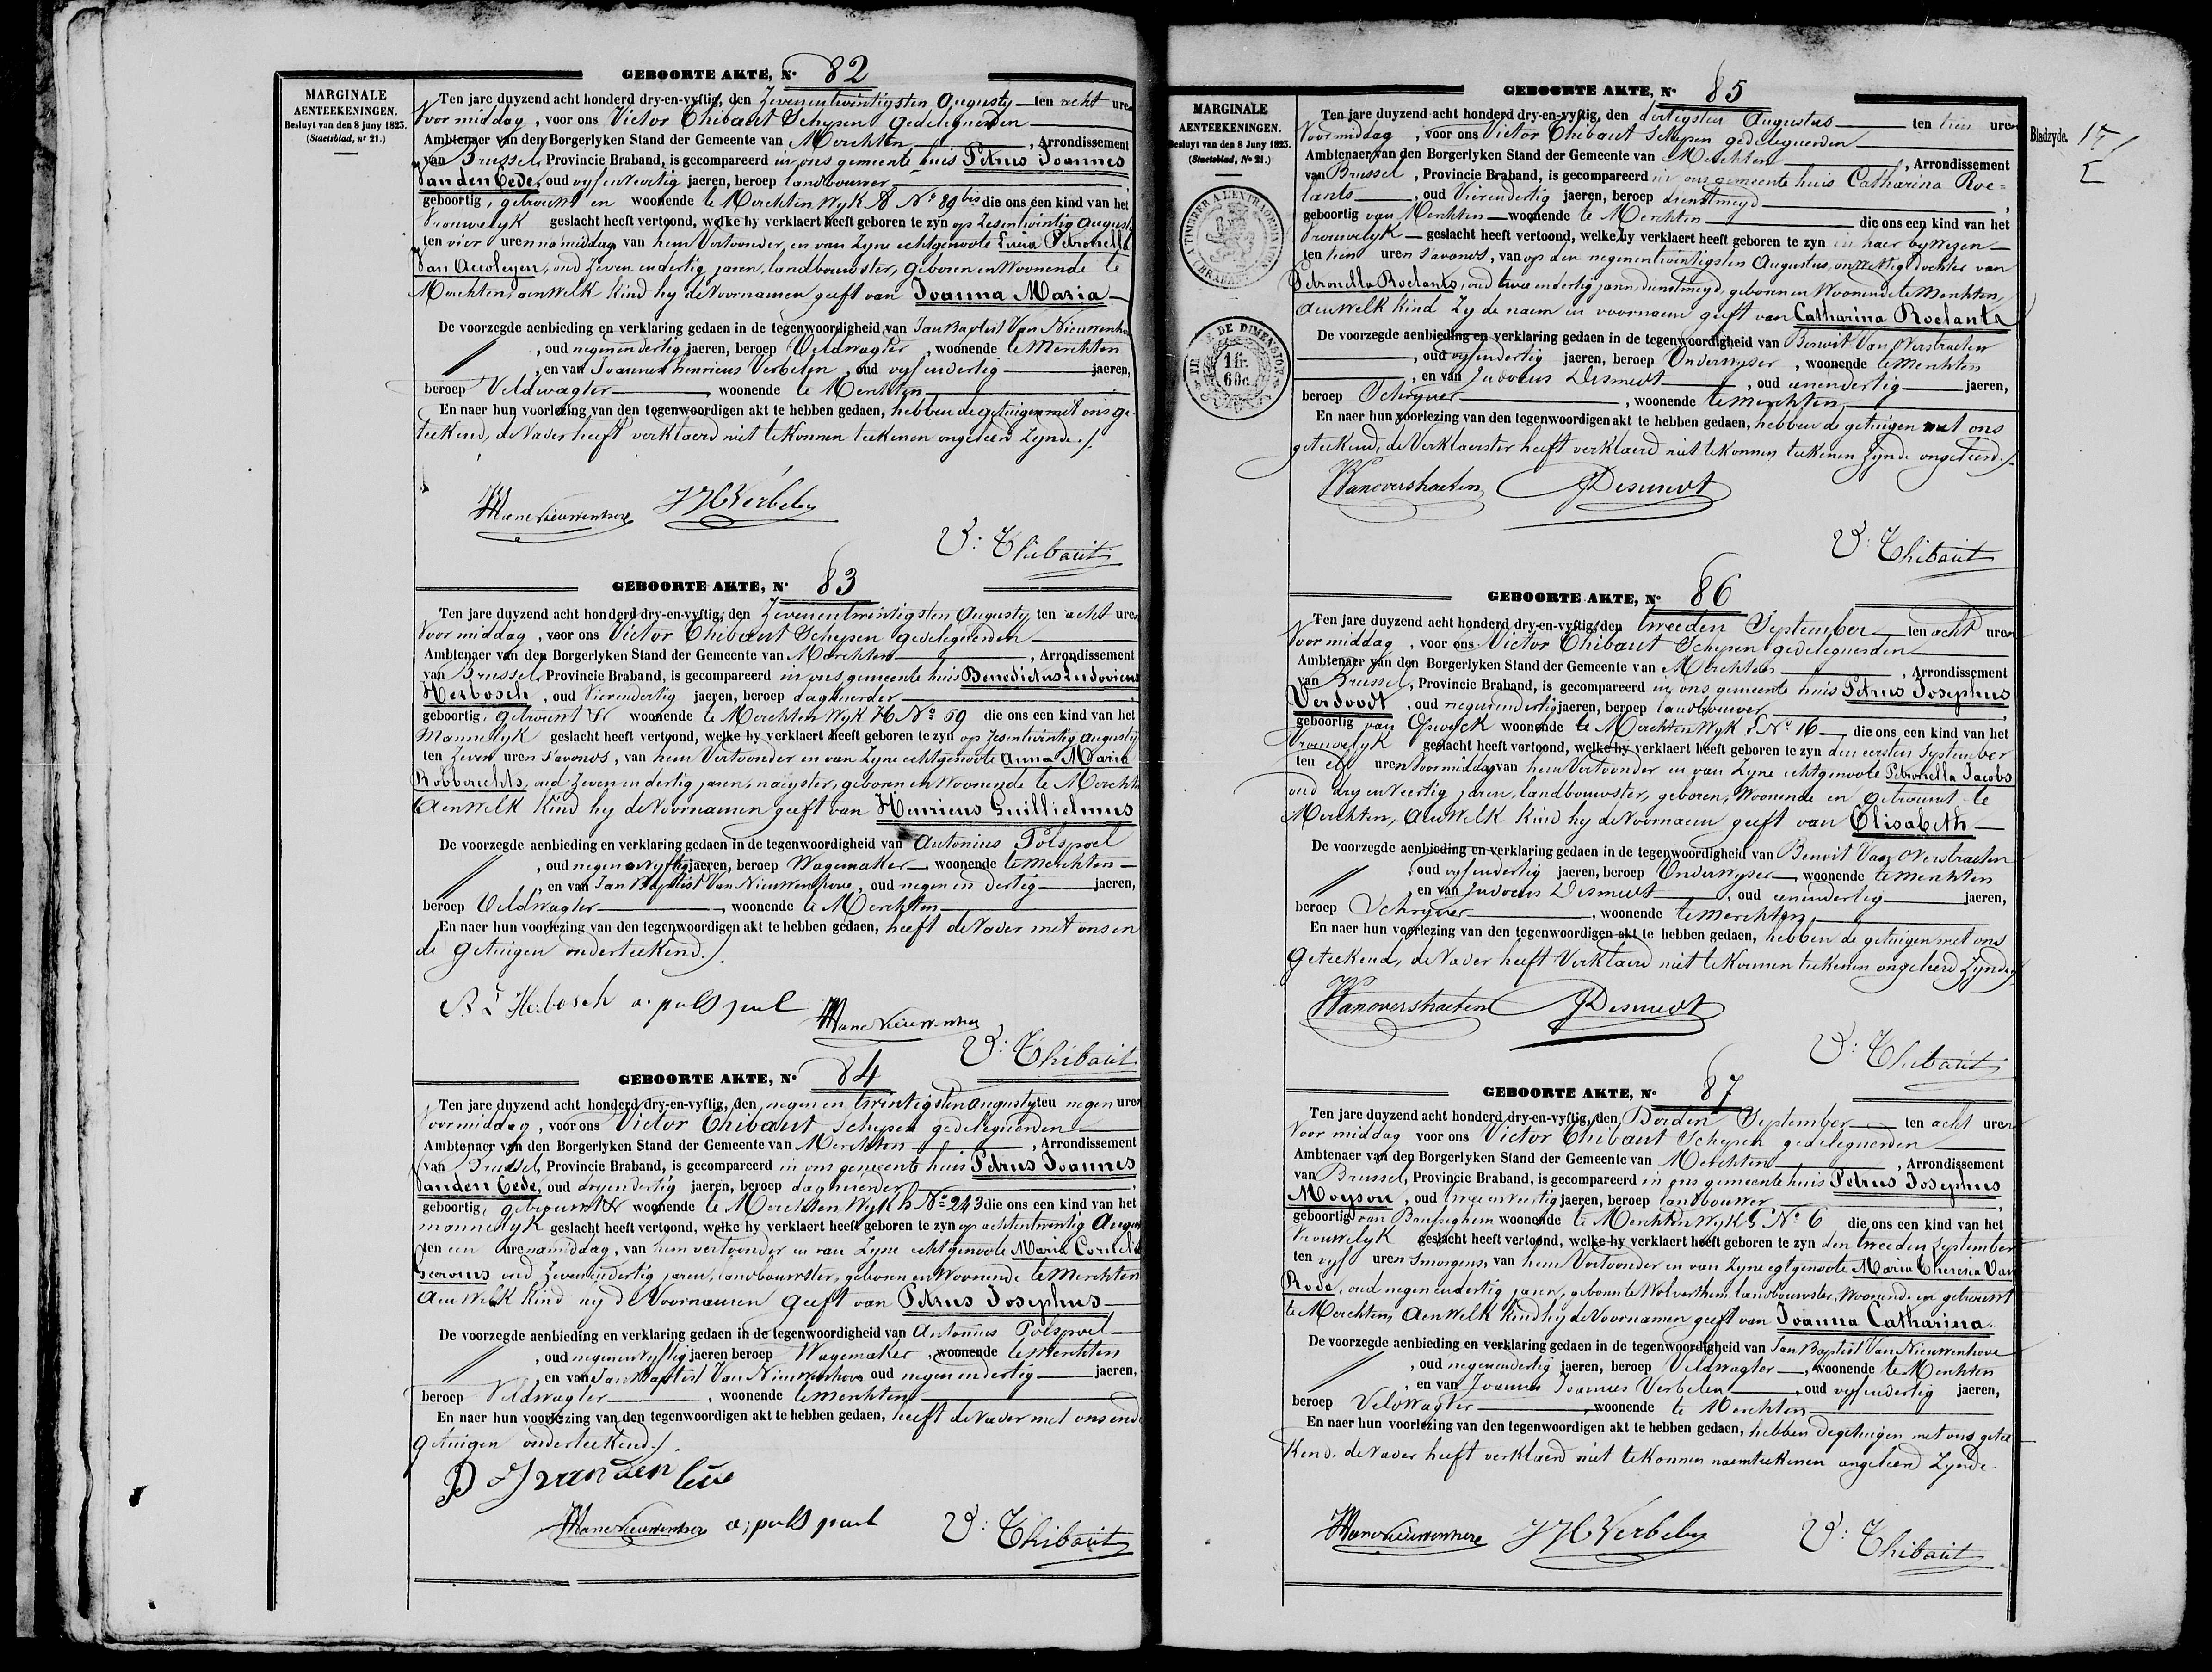 GEBOORTE AKTE, N° 82
MARGINALE
AENTEEKENINGEN.
Besluyt van den 8 juny 1823.
(Staetsblad, n° 21.)
Ten jare duyzend acht honderd dry-en-vyftig, den Zevenentwintigsten Augusty ten acht uren
Voormiddag, voor ons Victor Thibaut Schepen gedelegueerden
Ambtenaer van den Borgerlyken Stand der Gemeente van Merchten, Arrondissement
van Brussel, Provincie Braband, is gecompareerd in ons gemeente huis Petrus Joannes
Van den Eede, oud vyfenveertig jaeren, beroep landbouwer
geboortig, getrouwt en woonende te Merchten Wyk B N° 89 bis die ons een kind van het
Vrouwelyk geslacht heeft vertoond, welke hy verklaert heeft geboren te zyn op Zesentwintig Augusty
ten vier uren namiddag van hem Vertoonder, en van Zyne echtgenoote Lucia Petronella
Van Accoleyen, oud Zeven en dertig jaren, landbouwster, geboren en Woonende te
Merchten, aen Welk Kind hy de Voornamen geeft van Joanna Maria
De voorzegde aenbieding en verklaring gedaen in de tegenwoordigheid van Jan Baptist Van Nieuwenhove
, oud negenendertig jaeren, beroep Veldwagter, woonende te Merchten
, en van Joannes Henricus Verbelen, oud vyfendertig jaeren,
beroep Veldwagter, woonende te Merchten
En naer hun voorlezing van den tegenwoordigen akt te hebben gedaen, hebben de getuigen met ons ge-
teekend, de Vader heeft verklaerd niet te Konnen teekenen ongeleerd Zynde./.
JBVannieuwenhove JHVerbelen
V: Thibaut
GEBOORTE AKTE, N° 83
Ten jare duyzend acht honderd dry-en-vyftig, den Zevenentwintigsten Augusty ten acht uren
Voormiddag, voor ons Victor Thibaut Schepen gedelegueerden
Ambtenaer van den Borgerlyken Stand der Gemeente van Merchten, Arrondissement
van Brussel, Provincie Braband, is gecompareerd in ons gemeente huis Benedictus Ludovicus
Herbosch, oud Vierendertig jaeren, beroep daghuerder
geboortig, getrouwt & woonende te Merchten Wyk H N° 59 die ons een kind van het
Mannelyk geslacht heeft vertoond, welke hy verklaert heeft geboren te zyn op Zesentwintig Augusty
ten Zeven uren S'avonds, van hem Vertoonder en van Zyne echtgenoote Anna Maria
Robberechts, oud Zeven en dertig jaren, naeyster, geboren en Woonende te Merchten
Aen Welk Kind hy de Voornamen geeft van Henricus Guillielmus
De voorzegde aenbieding en verklaring gedaen in de tegenwoordigheid van Antonius Polspoel
, oud negenenvyftig jaeren, beroep Wagemaker woonende te Merchten
, en van Jan Baptist Van Nieuwenhove, oud negen en dertig jaeren,
beroep Veldwagter, woonende te Merchten
En naer hun voorlezing van den tegenwoordigen akt te hebben gedaen, heeft de Vader met ons en
de getuigen onderteekend./.
B L Herbosch a. pols poel JBVannieuwenhove
V: Thibaut
GEBOORTE AKTE, N° 84
Ten jare duyzend acht honderd dry-en-vyftig, den negen en twintigsten Augusty ten negen uren
Voormiddag, voor ons Victor Thibaut Schepen gedelegueerden
Ambtenaer van den Borgerlyken Stand der Gemeente van Merchten, Arrondissement
van Brussel, Provincie Braband, is gecompareerd in ons gemeente huis Petrus Joannes
Vanden Eede, oud dryendertig jaeren, beroep daghuerder
geboortig, getrouwt & woonende te Merchten Wyk h N° 243 die ons een kind van het
mannelyk geslacht heeft vertoond, welke hy verklaert heeft geboren te zyn op achtentwintig Augusty
ten een uren namiddag, van hem vertoonder en van Zyne echtgenoote Maria Cornelia
Geeroms oud Zevenendertig jaren, landbouwster, geboren en Woonende te Merchten
Aen Welk Kind hy de Voornamen geeft van Petrus Josephus
De voorzegde aenbieding en verklaring gedaen in de tegenwoordigheid van Antonius Polspoel
, oud negenenvyftig jaeren beroep Wagemaker, woonende te Merchten
, en van Jan Baptist Van Nieuwenhove oud negen en dertig jaeren,
beroep Veldwagter, woonende te Merchten
En naer hun voorlezing van den tegenwoordigen akt te hebben gedaen, heeft de Vader met ons en de
getuigen onderteekend./.
P J vanden Eede
JBVannieuwenhove a; pols poel V: Thibaut
GEBOORTE AKTE, N° 85
MARGINALE
AENTEEKENINGEN.
Besluyt van den 8 Juny 1823.
(Staetsblad, N° 21.)
A TIMBRER A L'EXTRAORDINAIRE
(BRABANT)
TIMBRE DE DIMENSION
1 fr.
60 c.
Bladzyde. 17
Ten jare duyzend acht honderd dry-en-vyftig, den dertigsten Augustus ten tien uren
Voormiddag, voor ons Victor Thibaut Schepen gedelegueerden
Ambtenaer van den Borgerlyken Stand der Gemeente van Merchten, Arrondissement
van Brussel, Provincie Braband, is gecompareerd in ons gemeente huis Catharina Roe-
lants, oud Vierendertig jaeren, beroep dienstmeyd
geboortig van Merchten woonende te Merchten die ons een kind van het
Vrouwelyk geslacht heeft vertoond, welke hy verklaert heeft geboren te zyn in haer bywezen
ten tien uren S'avonds, van op den negenentwintigsten Augustus, onwettige dochter van
Petronella Roelants, oud twee en dertig jaren, dienstmeyd, geboren en Woonende te Merchten,
Aen welk Kind Zy de naem en voornaem geeft van Catharina Roelants
De voorzegde aenbieding en verklaring gedaen in de tegenwoordigheid van Benoit Van Overstraeten
, oud vyfendertig jaeren, beroep Onderwyser, woonende te Merchten
, en van Judocus Desmedt, oud eenendertig jaeren,
beroep Schryver, woonende te Merchten
En naer hun voorlezing van den tegenwoordigen akt te hebben gedaen, hebben de getuigen met ons
geteekend, de Verklaerster heeft verklaerd niet te Konnen teekenen Zynde ongeleerd./.
BVanoverstraeten JDesmedt
V: Thibaut
GEBOORTE AKTE, N° 86
Ten jare duyzend acht honderd dry-en-vyftig, den tweeden September ten acht uren
Voormiddag, voor ons Victor Thibaut Schepen gedelegueerden
Ambtenaer van den Borgerlyken Stand der Gemeente van Merchten, Arrondissement
van Brussel, Provincie Braband, is gecompareerd in ons gemeente huis Petrus Josephus
Verdoodt, oud negenendertig jaeren, beroep landbouwer
geboortig van Opwyck woonende te Merchten Wyk F N° 16 die ons een kind van het
Vrouwelyk geslacht heeft vertoond, welke hy verklaert heeft geboren te zyn den eersten September
ten elf uren Voormiddag van hem Vertoonder en van Zyne echtgenoote Petronella Jacobs
oud dry en Veertig jaren, landbouwster, geboren, Woonende en getrouwt te
Merchten, Aen Welk Kind hy de Voornaem geeft van Elisabeth
De voorzegde aenbieding en verklaring gedaen in de tegenwoordigheid van Benoit Van Overstraeten
, oud vyfendertig jaeren, beroep Onderwyser, woonende te Merchten
, en van Judocus Desmedt, oud eenendertig jaeren,
beroep Schryver, woonende te Merchten
En naer hun voorlezing van den tegenwoordigen akt te hebben gedaen, hebben de getuigen met ons
Geteekend, de Vader heeft Verklaerd niet te Konnen teekenen ongeleerd Zynde./.
BVanoverstraeten JDesmedt
V: Thibaut
GEBOORTE AKTE, N° 87
Ten jare duyzend acht honderd dry-en-vyftig, den Derden September ten acht uren
Voormiddag voor ons Victor Thibaut Schepen gedelegueerden
Ambtenaer van den Borgerlyken Stand der Gemeente van Merchten, Arrondissement
van Brussel, Provincie Braband, is gecompareerd in ons gemeente huis Petrus Josephus
Moyson, oud tweeenveertig jaeren, beroep landbouwer
geboortig van Brusseghem woonende te Merchten Wyk G N° 6 die ons een kind van het
Vrouwelyk geslacht heeft vertoond, welke hy verklaert heeft geboren te zyn den tweeden September
ten vyf uren Smorgens, van hem Vertoonder en van Zyne egtgenoote Maria Theresia Van
Rode, oud negen en dertig jaren, geboren te Wolverthem, landbouwster, Woonende en getrouwt
te Merchten, Aen Welk Kind hy de Voornamen geeft van Joanna Catharina.
De voorzegde aenbieding en verklaring gedaen in de tegenwoordigheid van Jan Baptist Van Nieuwenhove
, oud negenendertig jaeren, beroep Veldwagter, woonende te Merchten
, en van Joannes Joannes Verbelen, oud vyfendertig jaeren,
beroep Veldwagter, woonende te Merchten
En naer hun voorlezing van den tegenwoordigen akt te hebben gedaen, hebben de getuigen met ons getee
Kend, de Vader heeft verklaerd niet te Konnen naemteekenen ongeleerd Zynde.
JBVannieuwenhove JHVerbelen V: Thibaut